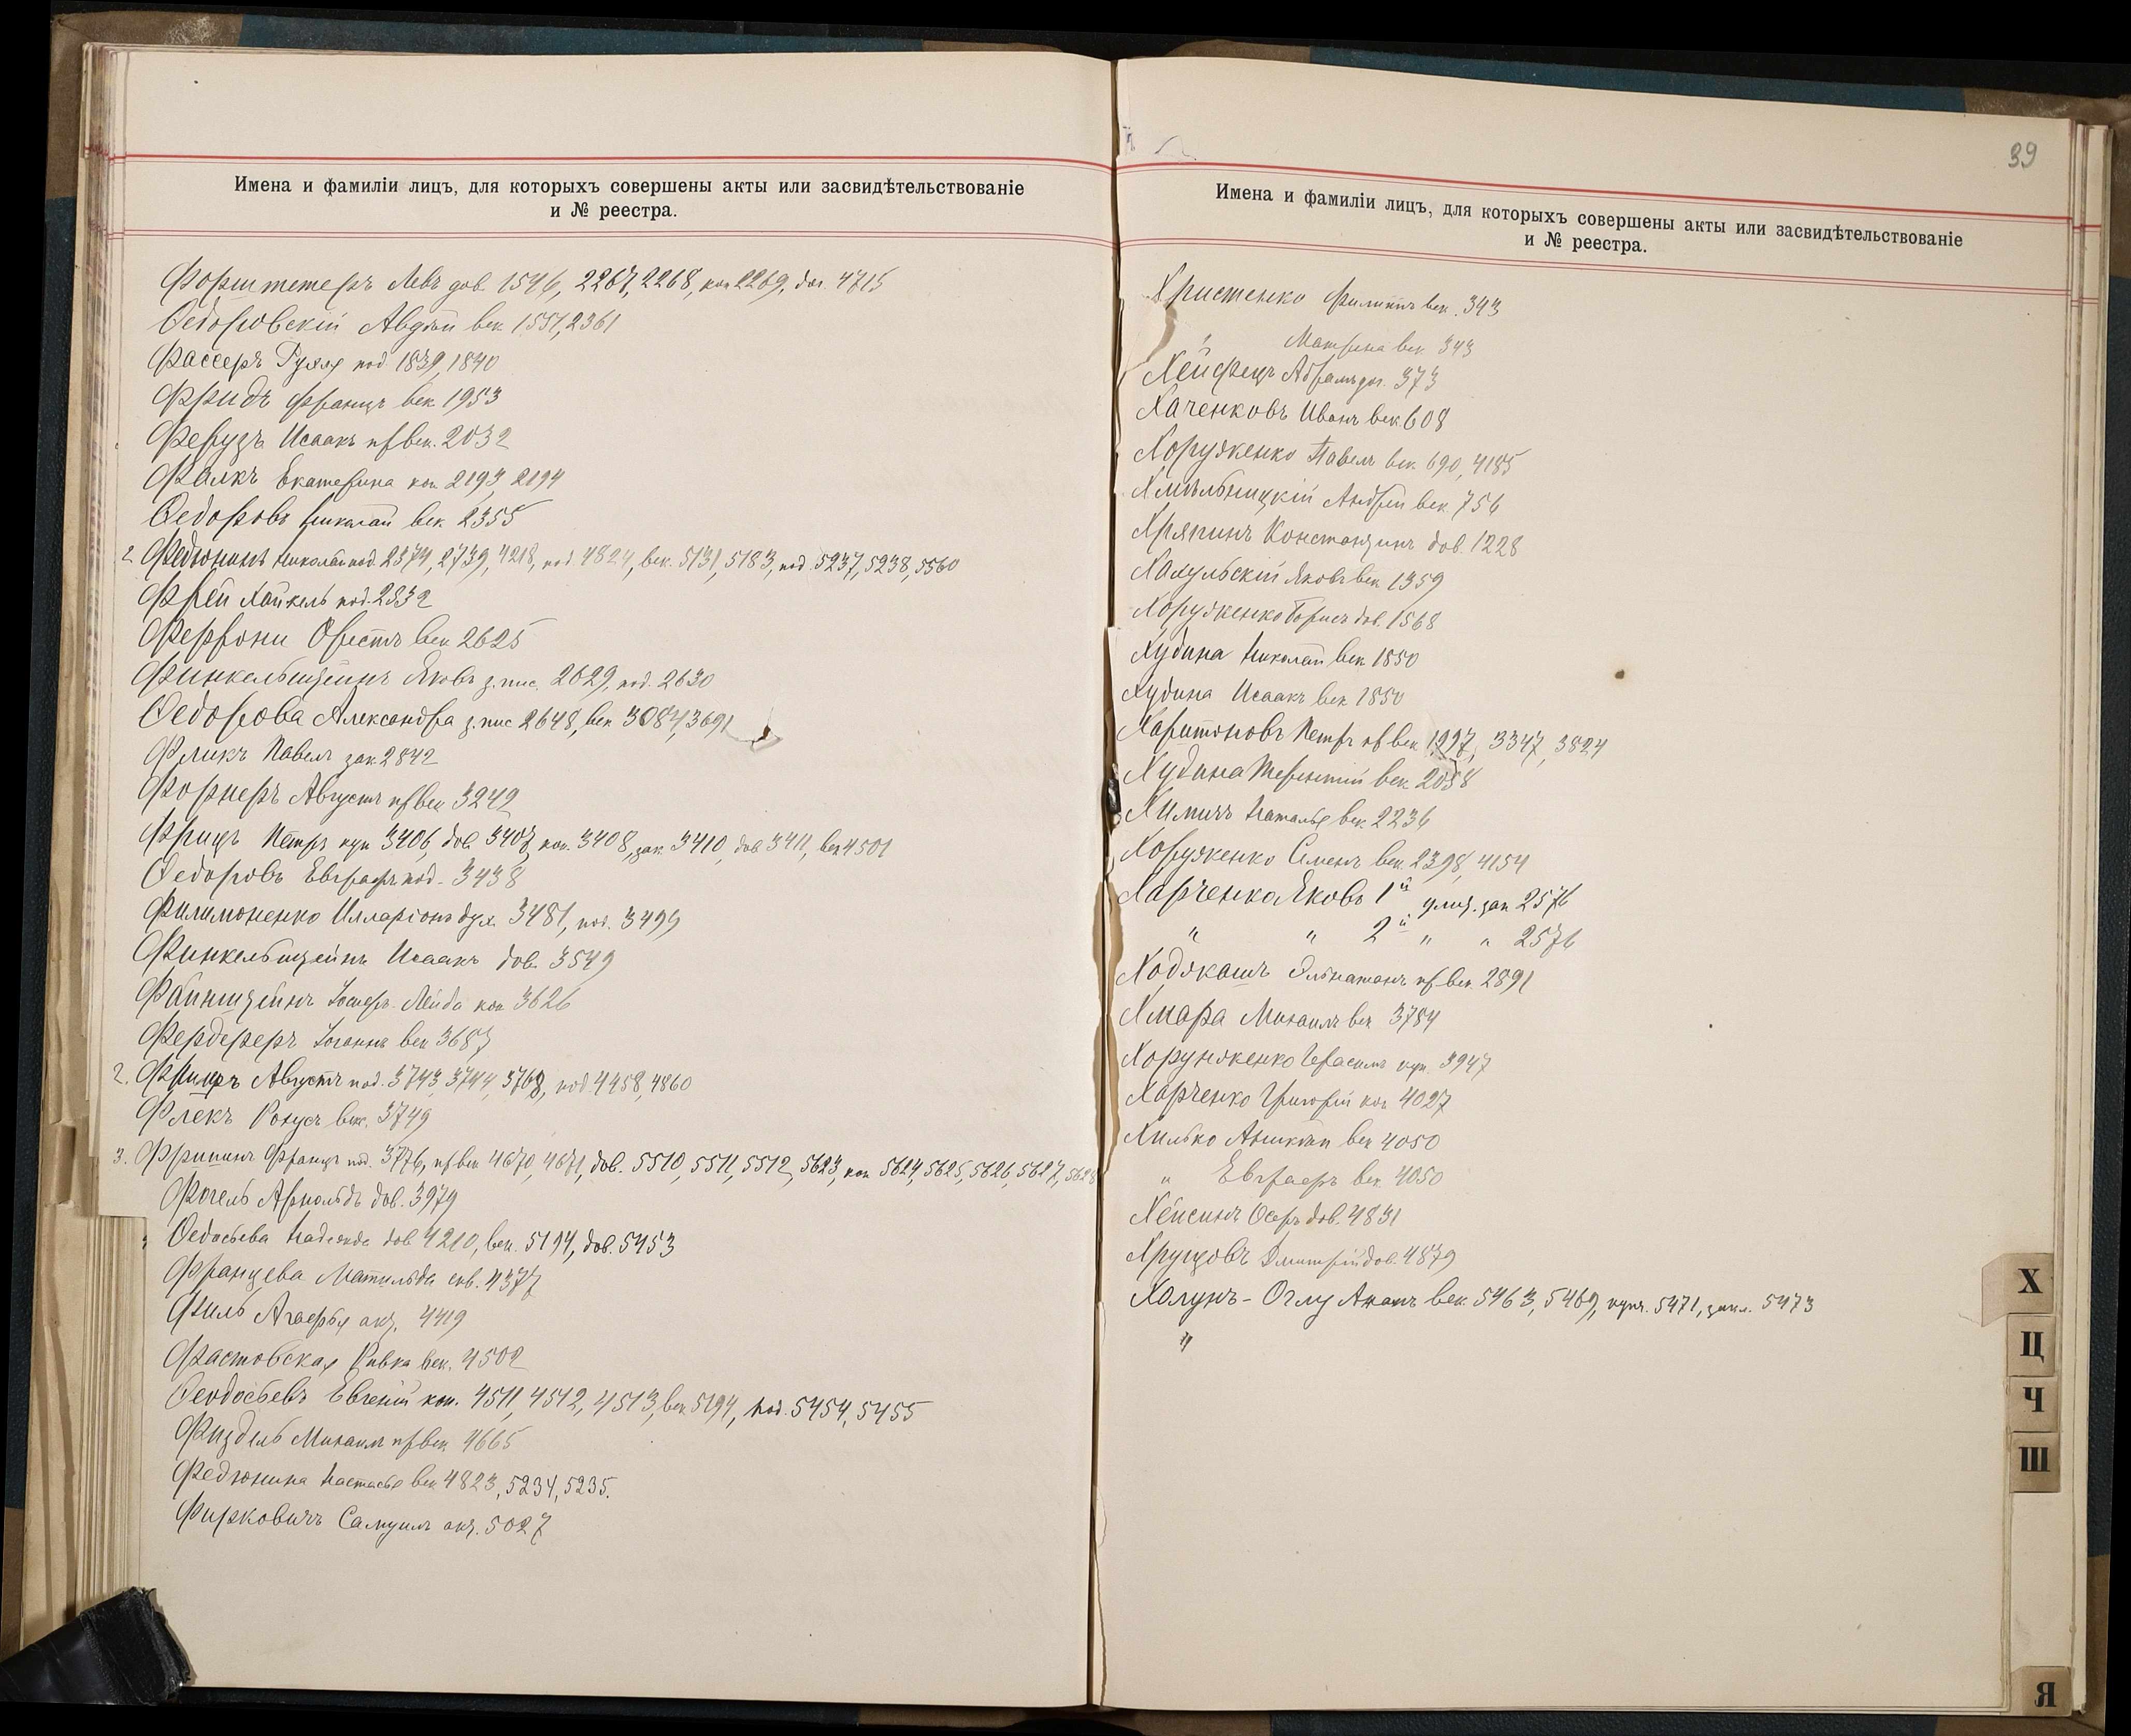 Имена и фамиліи лицъ, для которыхъ совершены акты или засвидѣтельствованіе
и № реестра.
Форштетеръ Левъ дов. 1546, 2267, 2268, коп 2269, дог. 4715
Ѳедоровскій Авдѣй век 1551, 2361
Фассеръ Рухля под 1839, 1840
Фридъ Францъ век 1953
Ферузъ Исаакъ пр век. 2032
Фалкъ Екатерина коп 2193, 2194
Ѳедоровъ Николай век 2355
2. Федюнинъ Николай под. 2374, 2739, 4218, под. 4824, век. 5131, 5183, под. 5237, 5238, 5560
Фрей Хайкель под. 2832
Феррони Орестъ век 2625
Финкельштейнъ Яковъ з. пис. 2629, под. 2630
Ѳедорова Александра з. пис 2648, век 3084, 3691
Фликъ Павелъ зак 2842
Форнеръ Августъ пр век 3249
Фрицъ Петръ куп 3406, дов. 3407, коп. 3408, зак 3410, дов 3411, век 4501
Ѳедоровъ Евграфъ под. 3438
Филимоненко Илларіонъ дух. 3481, под. 3499
Финкельштейнъ Исаакъ дов. 3549
Файнштейнъ Лейба коп 3626
Фердереръ Іоганна век 3687
2. Августъ под. 3743, 3744, 3768, под 4458, 4860
Флекъ век. 3749
3. Францъ под. 3776, пр век 4670, 4671, дов. 5510, 5511, 5512, 5623, коп 5624, 5625, 5626, 5627, 5628
Фогель Арнольдъ дов. 3979
Ѳедосьева Надежда дов 4210, век. 5194, дов. 5453
Францева Матильда дов. 4377
Филь Агафья акц. 4419
Фастовская Ривка век. 4502
Ѳеодосьевъ Евгеній коп. 4511, 4512, 4513, век 5194, под. 5454, 5455
Физдель Михаилъ пр век 4665
Федюнина Настасья век 4823, 5234, 5235.
Фирковичъ Самуилъ акц. 5027
39
Имена и фамиліи лицъ, для которыхъ совершены акты или засвидѣтельствованіе
и № реестра.
Христенко Филиппъ век. 343
" Матрена век 343
Хейфецъ Абрамъ дог. 373
Хаченковъ Иванъ век 608
Хоруженко Павелъ век 690, 4185
Хмѣльницкій Андрей век 756
Хряпинъ Константинъ дов. 1228
Яковъ век 1359
Хоруженко Борисъ дов. 1568
Худина Николай век 1850
Худина Исаакъ век 1850
Харитоновъ Петръ пр век 1997, 3347, 3824
Худина Терентій век 2058
Химичъ Наталья век 2236
Хоруженко Семенъ век 2398, 4154
Харченко Яковъ 1й улиц. зак 2576
" " 2й " " 2576
Ходжашъ Эльнатанъ пр век 2891
Хмара Михаилъ век 3784
Хорунженко Герасимъ куп. 3947
Харченко Григорій коп 4027
Хилько Аникѣй век 4050
" Евграфъ век 4050
Хейсинъ дов. 4831
Хрущовъ Дмитрій дов. 4879
Халунъ-Оглу век. 5463, 5469, купч. 5471, закл. 5473
"
Х
Ц
Ч
Ш
Я